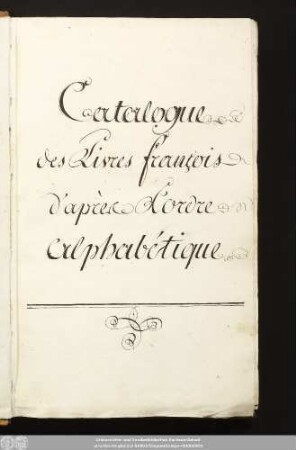 Catalogue
des Livres françois
d'après L'ordre
alphabétique